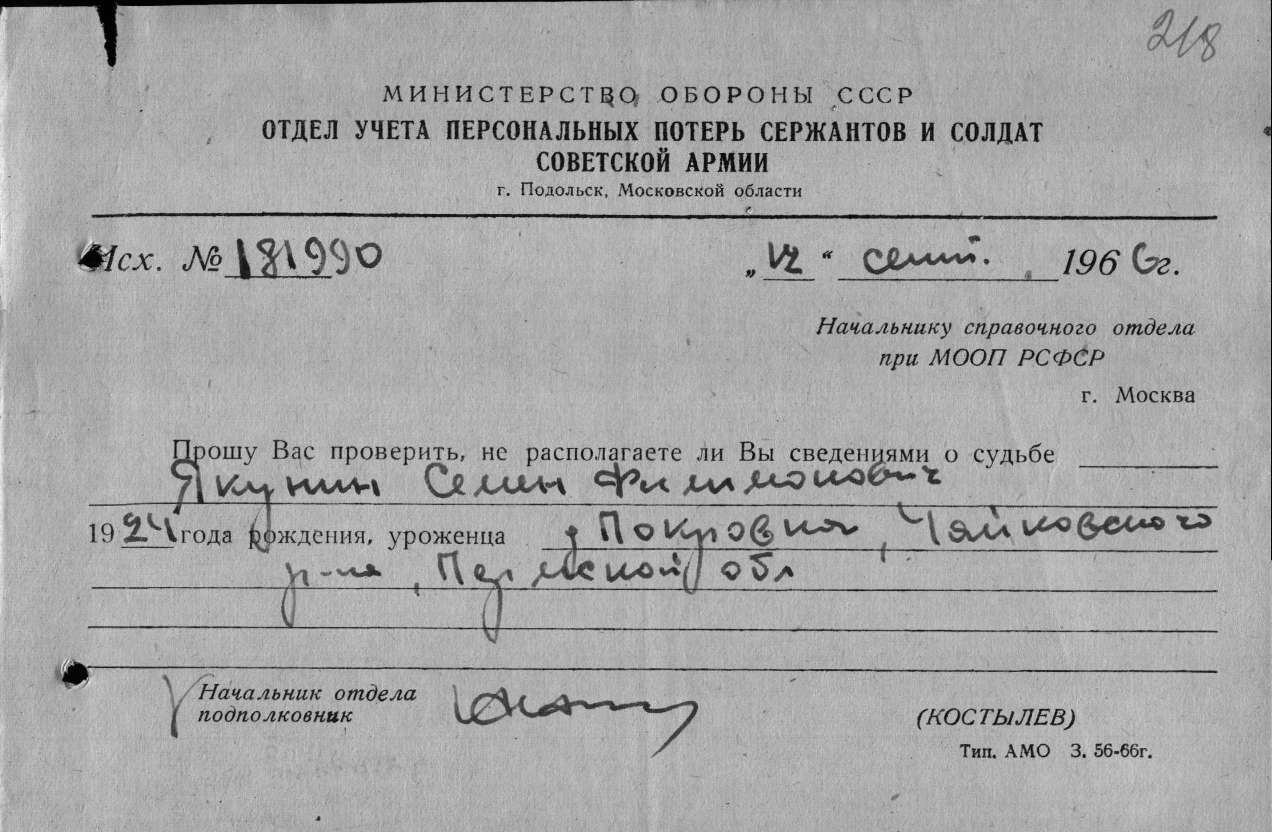 218
МИНИСТЕРСТВО ОБОРОНЫ СССР
ОТДЕЛ УЧЕТА ПЕРСОНАЛЬНЫХ ПОТЕРЬ СЕРЖАНТОВ И СОЛДАТ
СОВЕТСКОЙ АРМИИ
г. Подольск, Московской области
Исх. № 181990 „12“ сент. 1966г.
Начальнику справочного отдела
при МООП РСФСР
г. Москва
Прошу Вас проверить, не располагаете ли Вы сведениями о судьбе
Якунин Семен Филимонович
1924 года рождения, уроженца д Покровка, Чайковского
р-на, Пермской обл
Начальник отдела
подполковник
(КОСТЫЛЕВ)
Тип. АМО З. 56-66г.